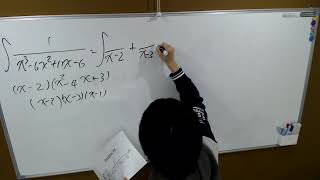 ∫ 1/(x³-6x²+11x-6) = ∫ /(x-2) + /(x-3)
(x-2)(x²-4x+3)
(x-2)(x-3)(x-1)